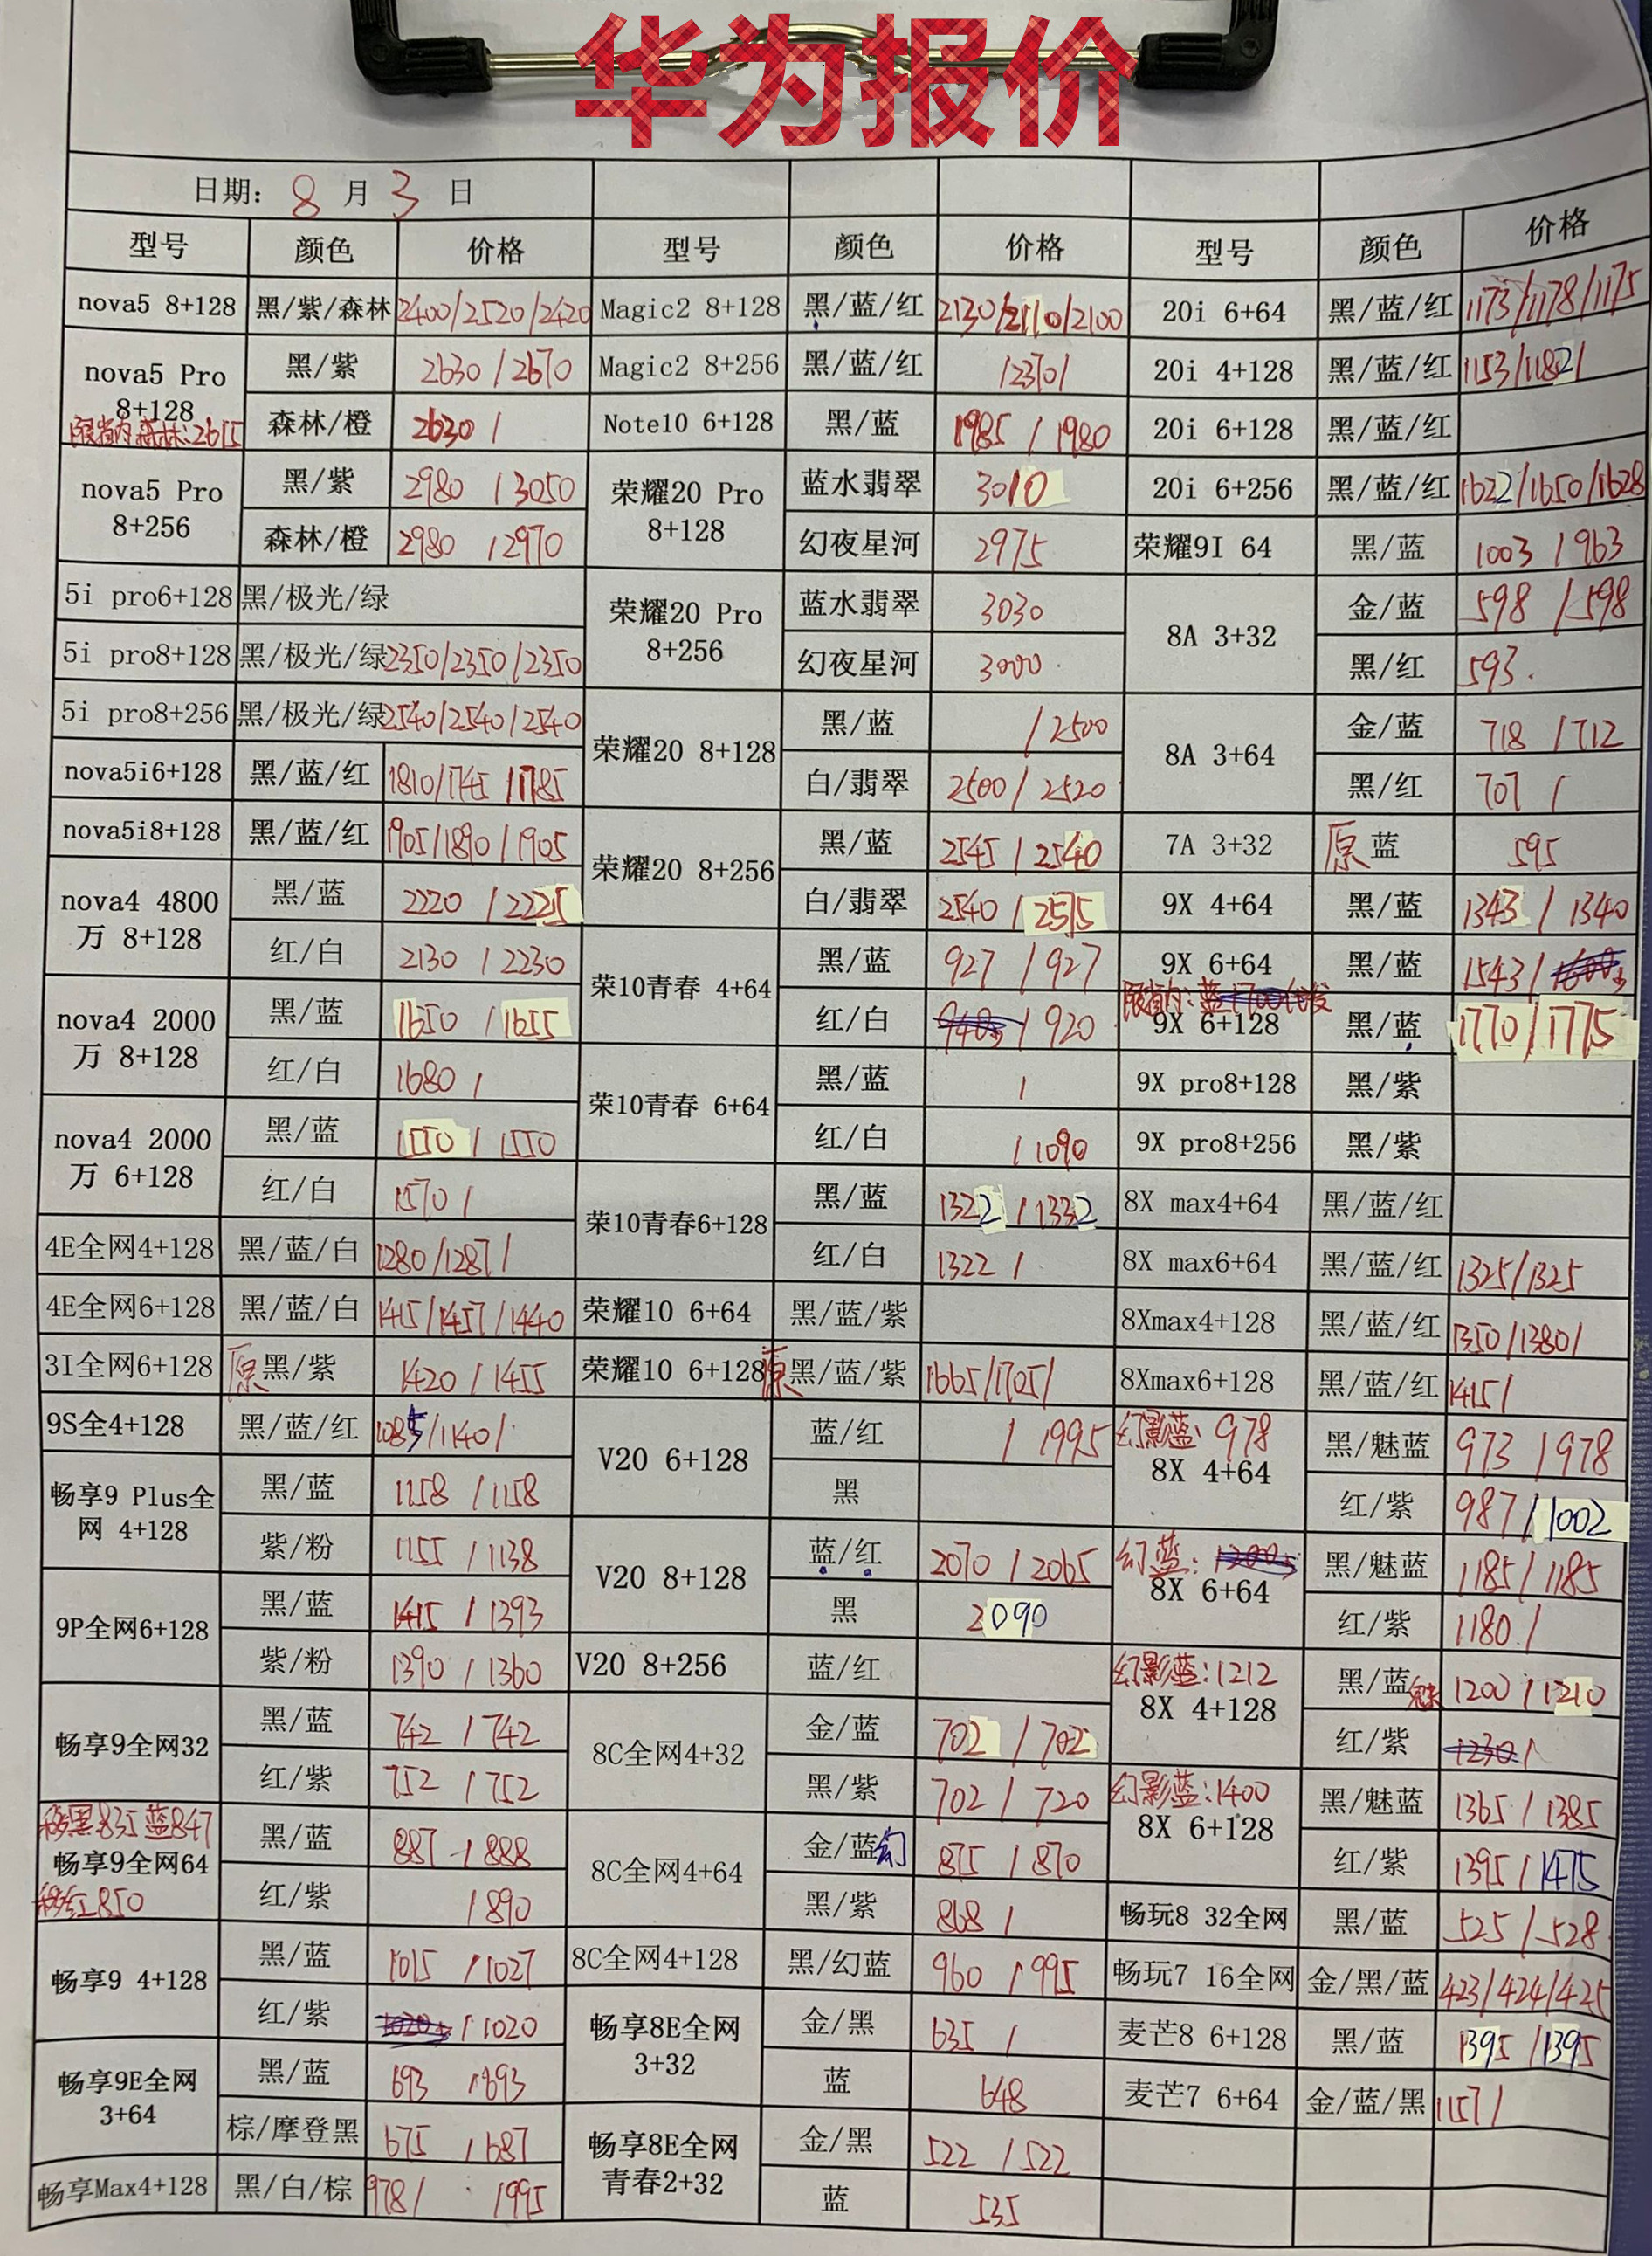 华为报价
日期: 8 月 3 日
型号 颜色 价格 型号 颜色 价格 型号 颜色 价格
nova5 8+128 黑/紫/森林 2400/2520/2420
nova5 Pro 8+128 黑/紫 2630/2670
限省内:森林:2615 森林/橙 2630/
nova5 Pro 8+256 黑/紫 2980/3050
森林/橙 2980/2970
5i pro6+128 黑/极光/绿
5i pro8+128 黑/极光/绿 2350/2350/2350
5i pro8+256 黑/极光/绿 2540/2540/2540
nova5i6+128 黑/蓝/红 1810/1745/1785
nova5i8+128 黑/蓝/红 1905/1890/1905
nova4 4800万 8+128 黑/蓝 2220/2225
红/白 2130/2230
nova4 2000万 8+128 黑/蓝 1650/1655
红/白 1680/
nova4 2000万 6+128 黑/蓝 1550/1550
红/白 1570/
4E全网4+128 黑/蓝/白 1280/1287/
4E全网6+128 黑/蓝/白 1415/1457/1440
3I全网6+128 原黑/紫 1420/1455
9S全4+128 黑/蓝/红 1085/1140/
畅享9 Plus全网 4+128 黑/蓝 1158/1158
紫/粉 1155/1138
9P全网6+128 黑/蓝 1415/1393
紫/粉 1390/1360
畅享9全网32 黑/蓝 742/742
红/紫 752/752
黑835 蓝847
畅享9全网64 黑/蓝 887/888
红850 红/紫 /890
畅享9 4+128 黑/蓝 1015/1027
红/紫 /1020
畅享9E全网 3+64 黑/蓝 693/693
棕/摩登黑 675/687
畅享Max4+128 黑/白/棕 978/ /1995
Magic2 8+128 黑/蓝/红 2130/2110/2100
Magic2 8+256 黑/蓝/红 /2370/
Note10 6+128 黑/蓝 1985/1980
荣耀20 Pro 8+128 蓝水翡翠 3010
幻夜星河 2975
荣耀20 Pro 8+256 蓝水翡翠 3030
幻夜星河 3000
荣耀20 8+128 黑/蓝 /2500
白/翡翠 2500/2520
荣耀20 8+256 黑/蓝 2545/2540
白/翡翠 2540/2515
荣10青春 4+64 黑/蓝 927/927
红/白 /920
荣10青春 6+64 黑/蓝 /
红/白 /1090
荣10青春6+128 黑/蓝 1322/1332
红/白 1322/
荣耀10 6+64 黑/蓝/紫
荣耀10 6+128 原黑/蓝/紫 1665/1705/
V20 6+128 蓝/红 /1995
黑
V20 8+128 蓝/红 2070/2065
黑 2090
V20 8+256 蓝/红
8C全网4+32 金/蓝 702/702
黑/紫 702/720
8C全网4+64 金/蓝幻 875/870
黑/紫 868/
8C全网4+128 黑/幻蓝 960/995
畅享8E全网 3+32 金/黑 635/
蓝 648
畅享8E全网青春2+32 金/黑 522/522
蓝 535
20i 6+64 黑/蓝/红 1173/1178/1175
20i 4+128 黑/蓝/红 1153/1182/
20i 6+128 黑/蓝/红
20i 6+256 黑/蓝/红 1622/1650/1628
荣耀9I 64 黑/蓝 1003/963
8A 3+32 金/蓝 598/598
黑/红 593
8A 3+64 金/蓝 718/712
黑/红 707/
7A 3+32 原蓝 595
9X 4+64 黑/蓝 1343/1340
9X 6+64 黑/蓝 1543/
限省内:蓝1700代发
9X 6+128 黑/蓝 1770/1775
9X pro8+128 黑/紫
9X pro8+256 黑/紫
8X max4+64 黑/蓝/红
8X max6+64 黑/蓝/红 1325/1325
8Xmax4+128 黑/蓝/红 1350/1380/
8Xmax6+128 黑/蓝/红 1415/
幻影蓝:978
8X 4+64 黑/魅蓝 973/978
红/紫 987/1002
幻蓝:
8X 6+64 黑/魅蓝 1185/1185
红/紫 1180/
幻影蓝:1212
8X 4+128 黑/蓝魅 1200/1210
红/紫 1230/
幻影蓝:1400
8X 6+128 黑/魅蓝 1365/1385
红/紫 1395/1475
畅玩8 32全网 黑/蓝 525/528
畅玩7 16全网 金/黑/蓝 423/424/425
麦芒8 6+128 黑/蓝 1395/1395
麦芒7 6+64 金/蓝/黑 1157/